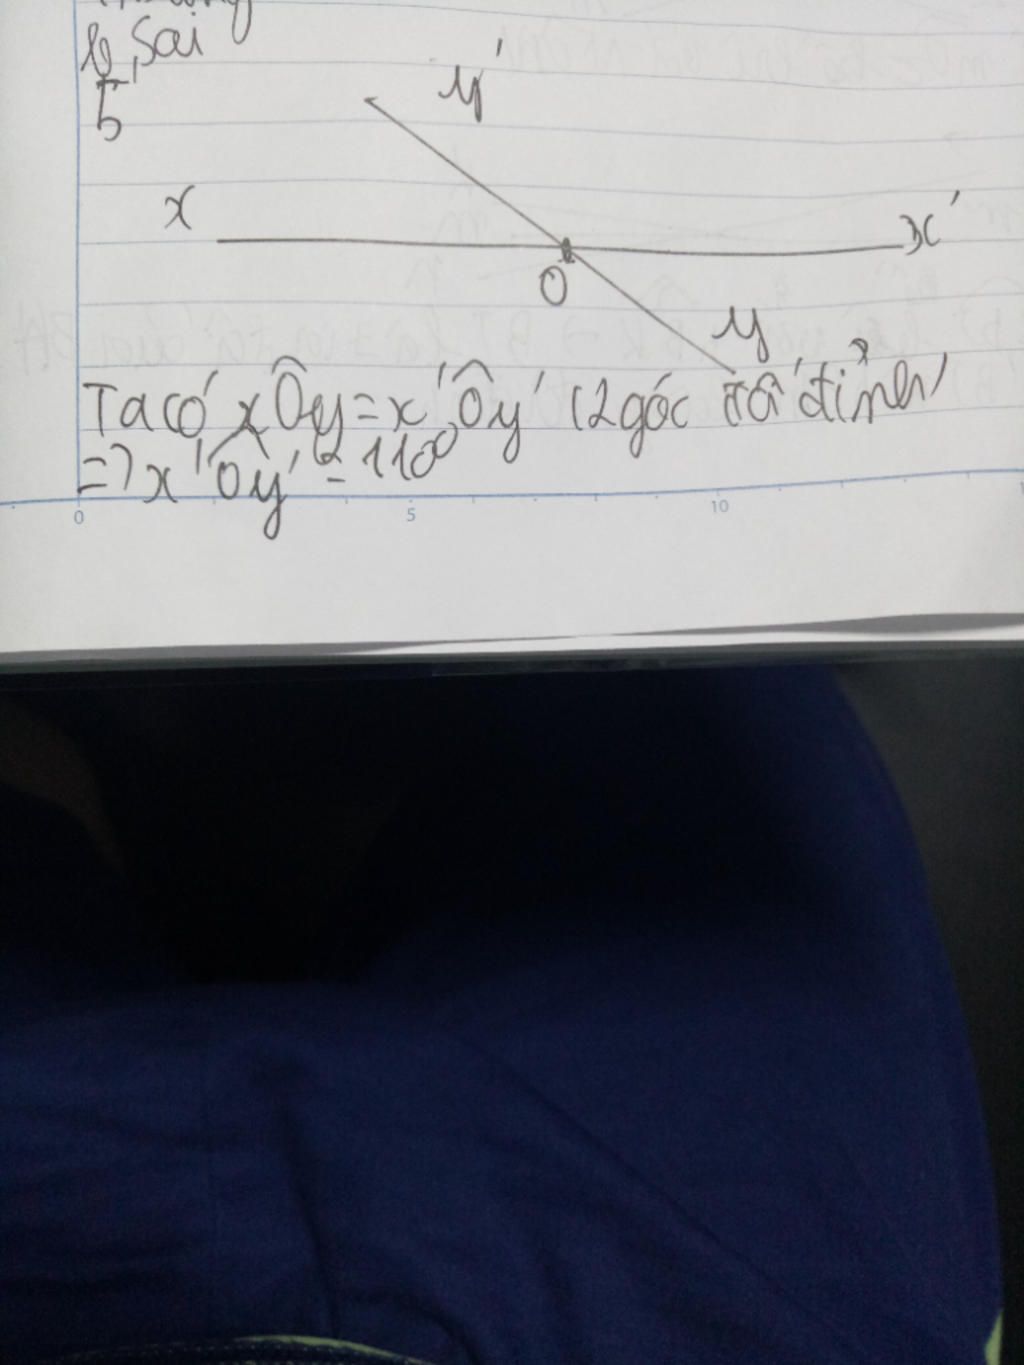 b, Sai
5
y'
x
x'
O
y
Ta có xÔy = x'Ôy' (2 góc đối đỉnh)
=> x'Ôy' = 110°
0 5 10